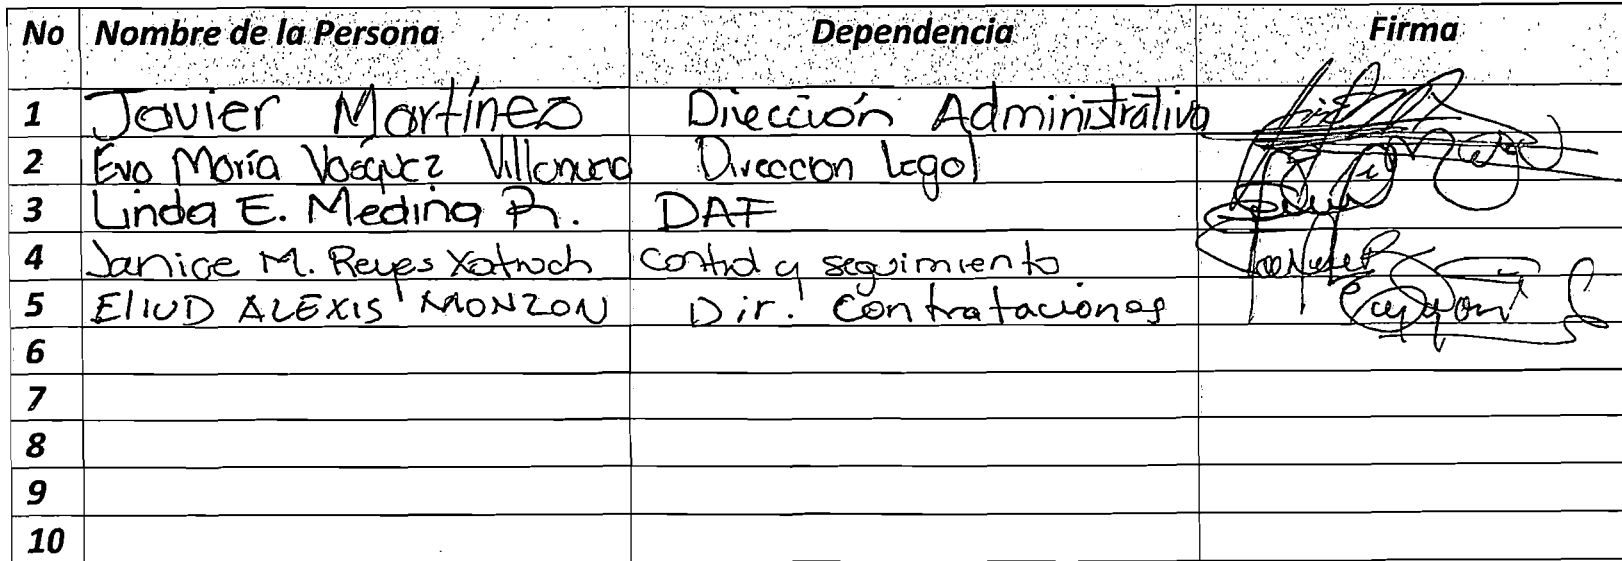 No Nombre de la Persona Dependencia Firma
1 Javier Martínez Dirección Administrativa
2 Eva María Vásquez Villanueva Direccion Legal
3 Linda E. Medina R. DAF
4 Janice M. Reyes Xatruch control y seguimiento
5 EliUD ALEXIS MONZON Dir. Contrataciones
6
7
8
9
10